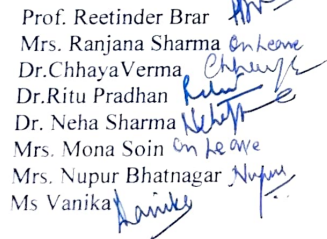 Prof. Reetinder Brar
Mrs. Ranjana Sharma On Leave
Dr.ChhayaVerma
Dr.Ritu Pradhan
Dr. Neha Sharma Neha
Mrs. Mona Soin On Leave
Mrs. Nupur Bhatnagar Nupur
Ms Vanika Vanika